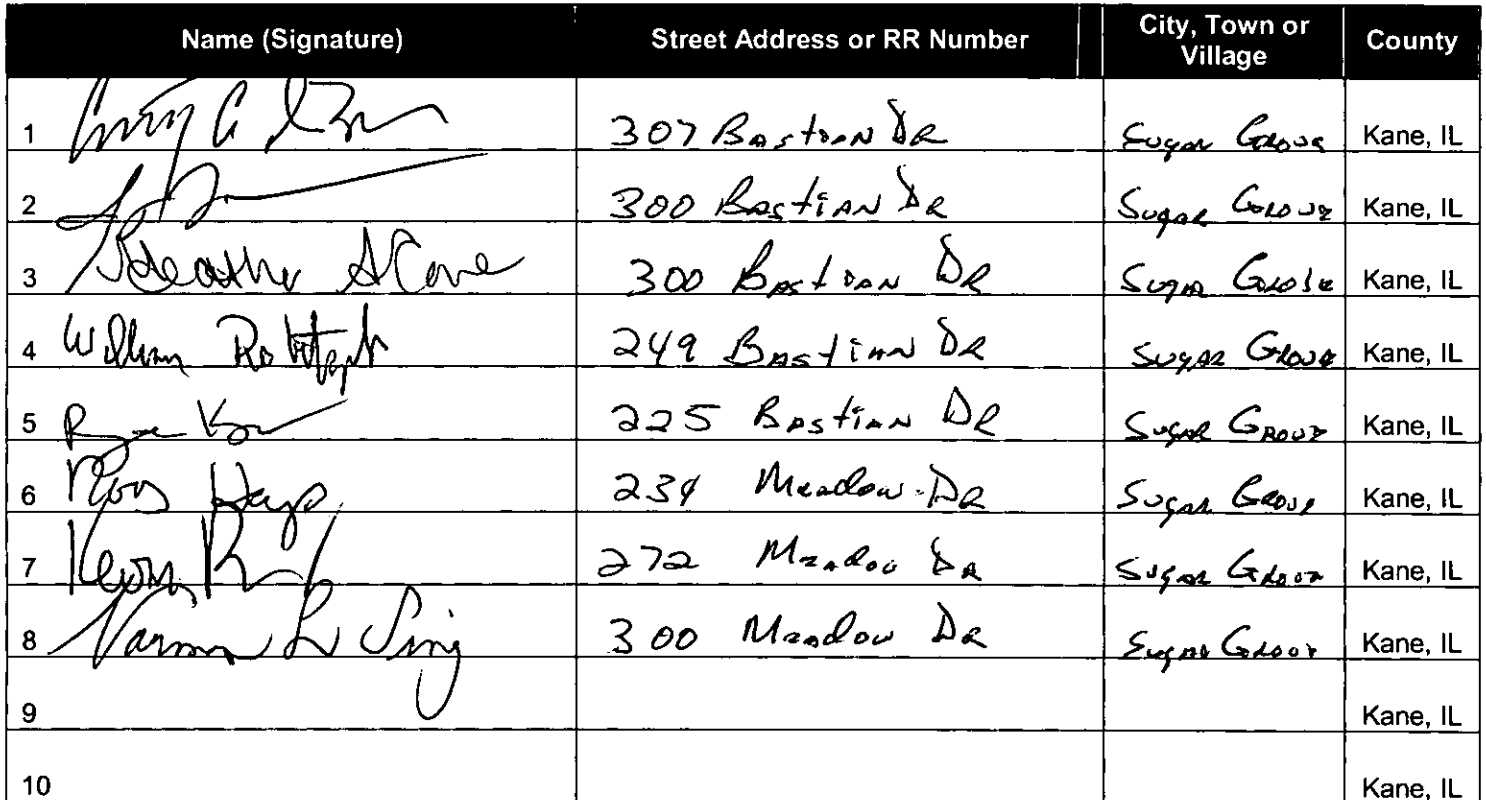 Name (Signature) Street Address or RR Number City, Town or Village County
1 307 Bastian DR Sugar Grove Kane, IL
2 300 Bastian DR Sugar Grove Kane, IL
3 Heather 300 Bastian DR Sugar Grove Kane, IL
4 William 249 Bastian DR Sugar Grove Kane, IL
5 225 Bastian DR Sugar Grove Kane, IL
6 Hays 234 Meadow DR Sugar Grove Kane, IL
7 Kevin 272 Meadow DR Sugar Grove Kane, IL
8 300 Meadow DR Sugar Grove Kane, IL
9 Kane, IL
10 Kane, IL